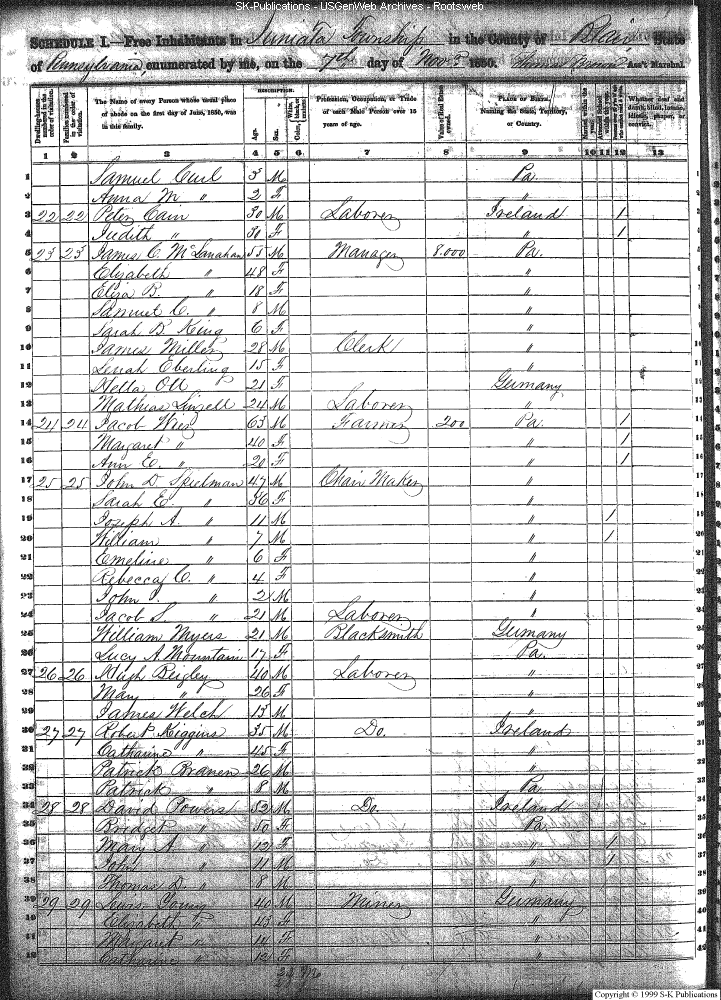 SK-Publications - USGenWeb Archives - Rootsweb
SCHEDULE I.—Free Inhabitants in Juniata Township in the County of Blair State
of Pennsylvania, enumerated by me, on the 7th day of Nov. 1850. Ass't Marshal.
DESCRIPTION.
Dwelling-houses numbered in the order of visitation. Families numbered in the order of visitation. The Name of every Person whose usual place of abode on the first day of June, 1850, was in this family. Age. Sex. White, black, or mulatto. Color, Profession, Occupation, or Trade of each Male Person over 15 years of age. Value of Real Estate owned. PLACE OF BIRTH. Naming the State, Territory, or Country. Married within the year. Attended School within the year. Whether deaf and dumb, blind, insane, idiotic, pauper, or convict.
1 2 3 4 5 6 7 8 9 10 11 12 13
1 Samuel Curl 3 M Pa. 1
2 Anna M. " 2 F " 2
3 22 22 Peter Cain 30 M Laborer Ireland / 3
4 Judith " 31 F " / 4
5 23 23 James C. McLanahan 55 M Manager 8.000 Pa. 5
6 Elizabeth " 48 F " 6
7 Eliza B. " 18 F " 7
8 Samuel C. " 8 M " 8
9 Sarah B. King 6 F " 9
10 James Miller 28 M Clerk " 10
11 Leriah Eberling 15 F " 11
12 Hella Ott 21 F Germany 12
13 Mathias 24 M Laborer " 13
14 24 24 Jacob 63 M Farmer 200 Pa. / 14
15 Margaret " 40 F " / 15
16 Ann E. " 20 F " / 16
17 25 25 John D. Spielman 47 M Chair Maker " 17
18 Sarah E. " 36 F " 18
19 Joseph A. " 11 M " / 19
20 William " 7 M " / 20
21 Emeline " 6 F " 21
22 Rebecca C. " 4 F " 22
23 John " 2 M " 23
24 Jacob S. " 21 M Laborer " 24
25 William Myers 21 M Blacksmith Germany 25
26 Lucy A. Mountain 17 F Pa. 26
27 26 26 Hugh Beigley 40 M Laborer " 27
28 Mary " 26 F " 28
29 James Welch 13 M " 29
30 27 27 Robert Higgins 35 M Do. Ireland 30
31 Catharine " 45 F " 31
32 Patrick Branen 26 M " 32
33 Patrick " 8 M Pa. 33
34 28 28 David Powers 52 M Do. Ireland 34
35 Bridget " 50 F Pa. 35
36 Mary A. " 12 F " / 36
37 John " 11 M " / 37
38 Thomas D. " 8 M " 38
39 29 29 Lewis Young 40 M Miner Germany
40 Elizabeth " 43 F "
41 Margaret " 14 F "
42 Catharine " 12 F " 42
Copyright © 1999 S-K Publications